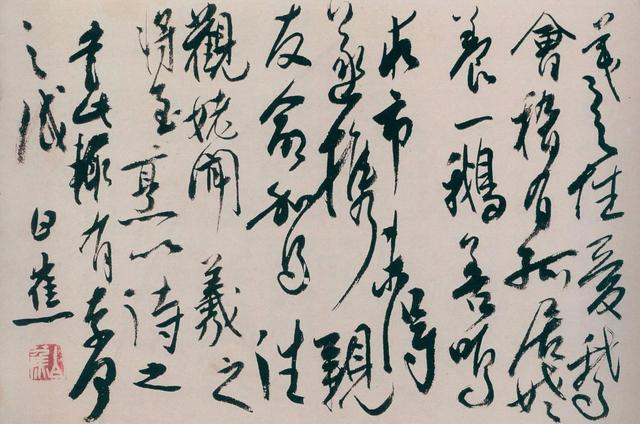 羲之性愛鵝
會稽有孤居姥
養一鵝善鳴
求市未得
遂携親
友命駕往
觀姥聞羲之
將至烹以待之
書此輒有
之感 白蕉